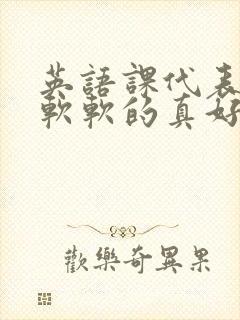 英語課代表
軟軟的真好
歡樂奇異果